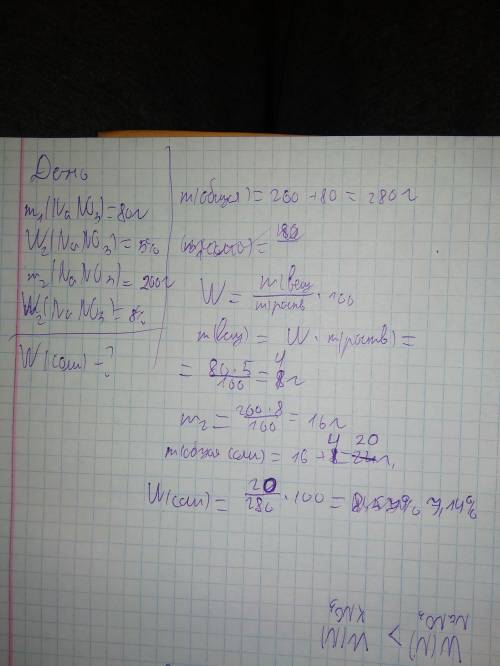 Дано
m₁(NaNO₃)=80г
W₂(NaNO₃)=5%
m₂(NaNO₃)=200г
W₂(NaNO₃)=8%
W(соли)-?
m(общая)=200+80=280г
W=m(вещ)/m(раств)·100
m(вещ)=W·m(раств)=
=80·5/100=4г
m₂=200·8/100=16г
m(общая соли)=16+4 20г
W(соли)=20/280·100= 7,14%
W(N) > W(N)
NaNO₃ KNO₃